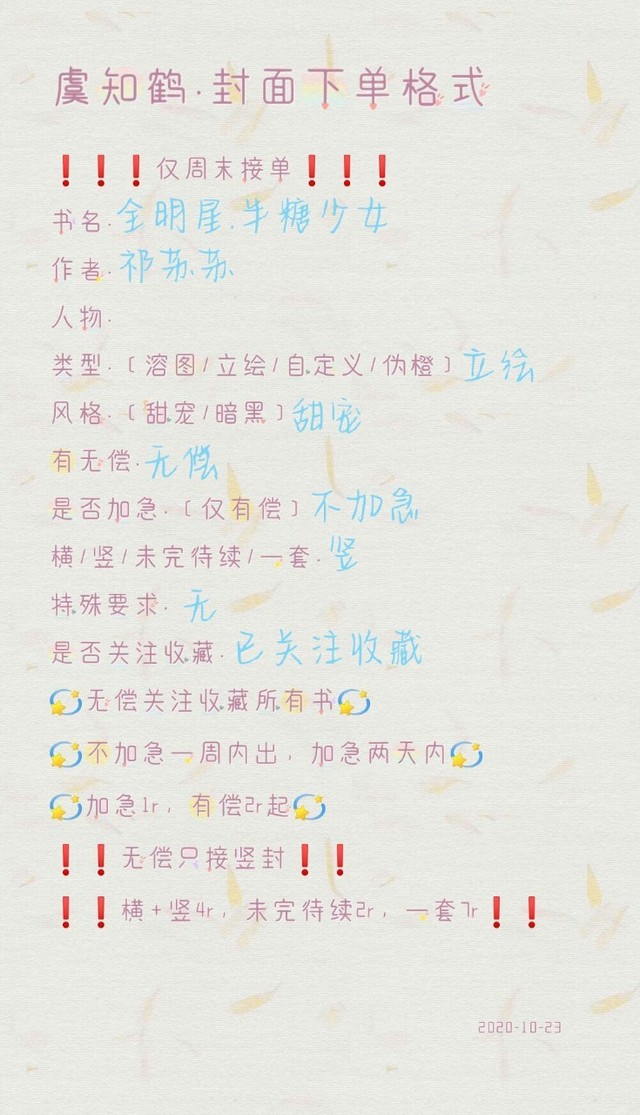 虞知鹤·封面下单格式
❗❗❗仅周末接单❗❗❗
书名·全明星.牛糖少女
作者·祁苏苏
人物·
类型·〔溶图/立绘/自定义/伪橙〕立绘
风格·〔甜宠/暗黑〕甜宠
有无偿·无偿
是否加急·〔仅有偿〕不加急
横/竖/未完待续/一套·竖
特殊要求·无
是否关注收藏·已关注收藏
💫无偿关注收藏所有书💫
💫不加急一周内出，加急两天内💫
💫加急1r，有偿2r起💫
❗❗无偿只接竖封❗❗
❗❗横+竖4r，未完待续2r，一套7r❗❗
2020-10-23